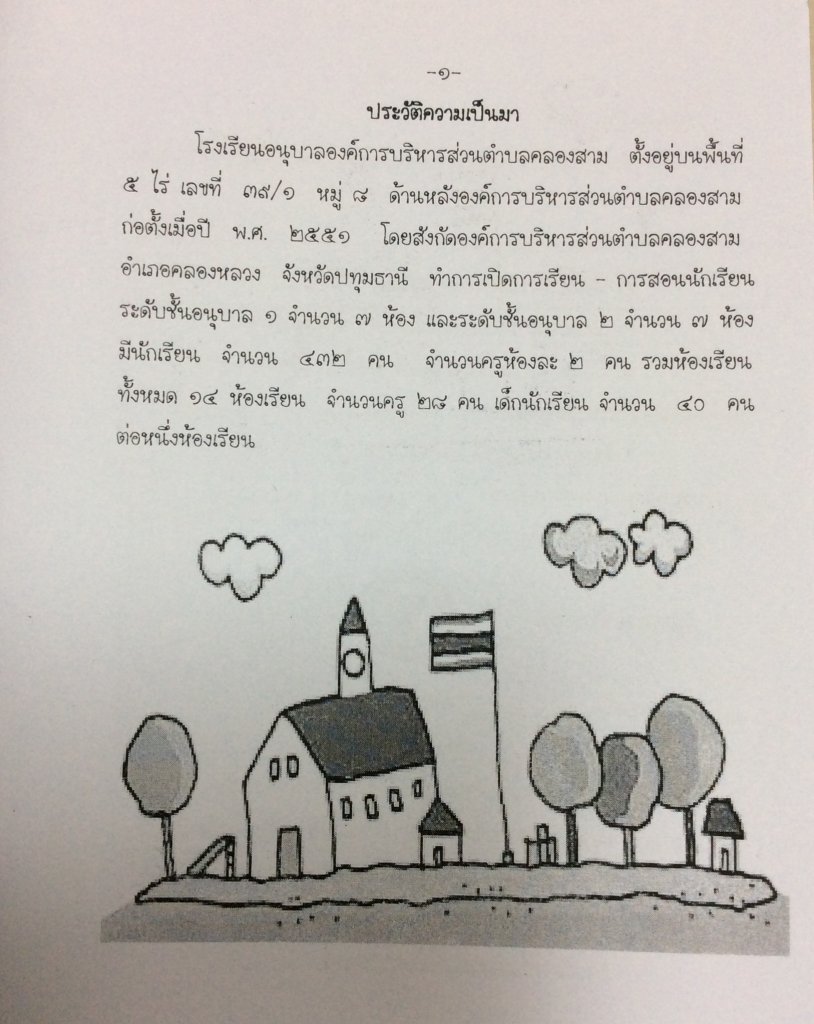 -๑-
ประวัติความเป็นมา
โรงเรียนอนุบาลองค์การบริหารส่วนตำบลคลองสาม ตั้งอยู่บนพื้นที่
๕ ไร่ เลขที่ ๓๙/๑ หมู่ ๘ ด้านหลังองค์การบริหารส่วนตำบลคลองสาม
ก่อตั้งเมื่อปี พ.ศ. ๒๕๕๑ โดยสังกัดองค์การบริหารส่วนตำบลคลองสาม
อำเภอคลองหลวง จังหวัดปทุมธานี ทำการเปิดการเรียน - การสอนนักเรียน
ระดับชั้นอนุบาล ๑ จำนวน ๗ ห้อง และระดับชั้นอนุบาล ๒ จำนวน ๗ ห้อง
มีนักเรียน จำนวน ๔๓๒ คน จำนวนครูห้องละ ๒ คน รวมห้องเรียน
ทั้งหมด ๑๔ ห้องเรียน จำนวนครู ๒๘ คน เด็กนักเรียน จำนวน ๔๐ คน
ต่อหนึ่งห้องเรียน